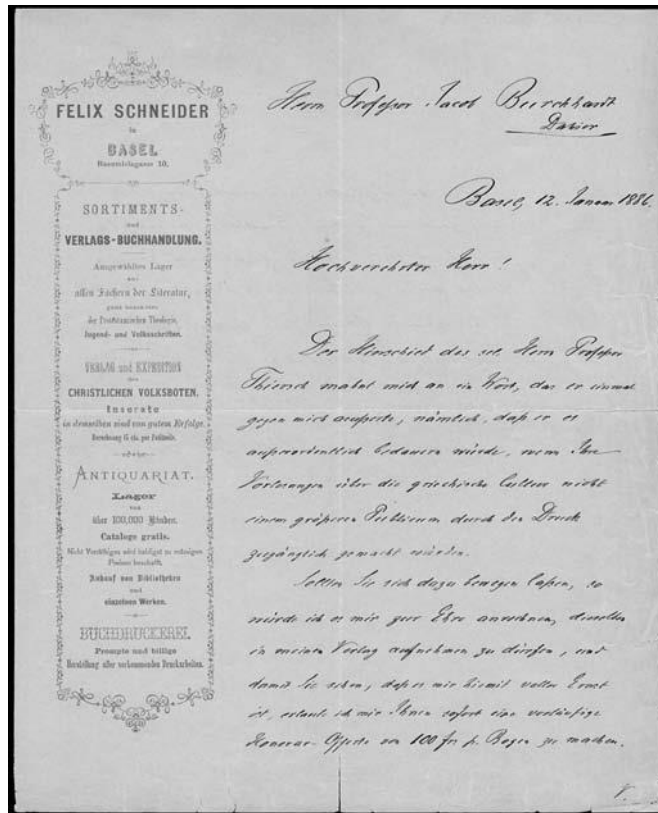 FELIX SCHNEIDER
in
BASEL
SORTIMENTS-
und
VERLAGS-BUCHHANDLUNG.
Ausgewähltes Lager
aus
allen Fächern der Literatur,
ganz besonders
der Protestantischen Theologie,
Jugend- und Volksschriften.
VERLAG und EXPEDITION
des
CHRISTLICHEN VOLKSBOTEN.
Inserate
in demselben sind von gutem Erfolge.
Berechnung 15 cts. per Petitzeile.
ANTIQUARIAT.
Lager
von
über 100,000 Bänden.
Cataloge gratis.
Nicht Vorräthiges wird baldigst zu
Preisen beschafft.
Ankauf von Bibliotheken
und
einzelnen Werken.
BUCHDRUCKEREI.
Prompte und billige
Herstellung aller vorkommenden Druckarbeiten.
Herrn Professor Jacob Burckhardt
Dahier
Basel, 12. Januar 1886.
Hochverehrter Herr!
Der Hinschied des sel. Herrn Professor
Thiersch mahnt mich an ein Wort, das er einmal
gegen mich äusserte, nämlich, daß er es
ausserordentlich bedauern würde, wenn Ihre
Vorlesungen über die griechische Cultur nicht
einem größeren Publicum durch den Druck
zugänglich gemacht würden.
Sollten Sie sich dazu bewegen laßen, so
würde ich es mir zur Ehre anrechnen, dieselben
in meinen Verlag aufnehmen zu dürfen, und
damit Sie sehen, daß es mir hiemit voller Ernst
ist, erlaube ich mir Ihnen sofort eine vorläufige
Honorar-Offerte von 100 frs p. Bogen zu machen.